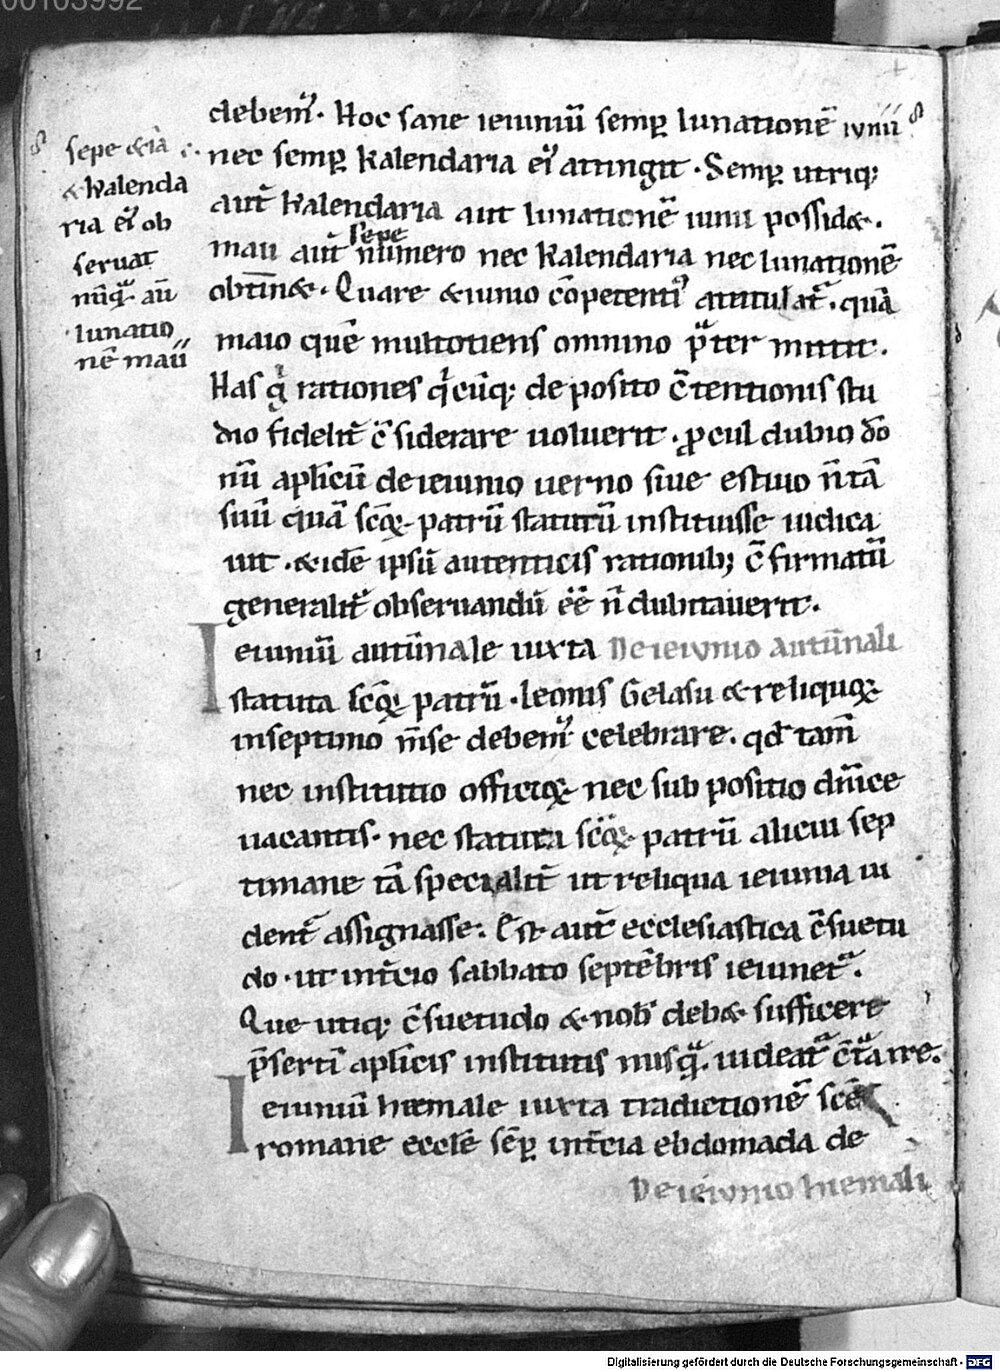 00105992
debemꝰ. Hoc sane ieiuniū semꝑ lunationē iunii
nec semꝑ kalendaria eiꝰ attingit. Semꝑ utriq;
aut̄ kalendaria aut lunationē iunii possid&.
sepe
maii aut̄ numero nec kalendaria nec lunationē
obtin&. Quare & iunio cōpetentiꝰ atitulat᷑. quā
maio quē multotiens omnino p̄ter mittit.
Has g̊ rationes q̍cūq; de posito c̄tentionis stu
dio fidelit̄ c̄siderare uoluerit. ꝓcul dubio do
nū aplicū de ieiunio uerno siue estiuo n̄ tā
suū quā scōꝝ patrū statutū instituisse iudica
uit. & idē ipsū autenticis rationib; c̄firmatū
generalit̄ obseruandū eē n̄ dubitauerit.
Ieiuniū autūnale iuxta De ieiunio autūnali
statuta scōꝝ patrū. leonis Gelasii & reliquoꝝ
in septimo m̄se debemꝰ celebrare. qd̄ tam̄
nec institutio officioꝝ nec sub positio dn̄ice
uacantis. nec statuta scōꝝ patrū alicui sep
timane tā specialit̄ ut reliqua ieiunia ui
dent᷑ assignasse. Est aut̄ ecclesiastica c̄suetu
do. ut in t̄cio sabbato septēbris ieiunet᷑.
Que utiq; c̄suetudo & nob̄ deb& sufficere
p̄serti aplicis institutis nusq̄. uideat᷑ c̄t̄ire.
Ieiuniū hiemale iuxta tradictionē scē
romane ecclē sēꝑ in t̄cia ebdomada de
De ieiunio hiemali
sepe &iā
& kalenda
ria eiꝰ ob
seruat
nūq̄ aū
lunatio
nē maii
Digitalisierung gefördert durch die Deutsche Forschungsgemeinschaft - DFG